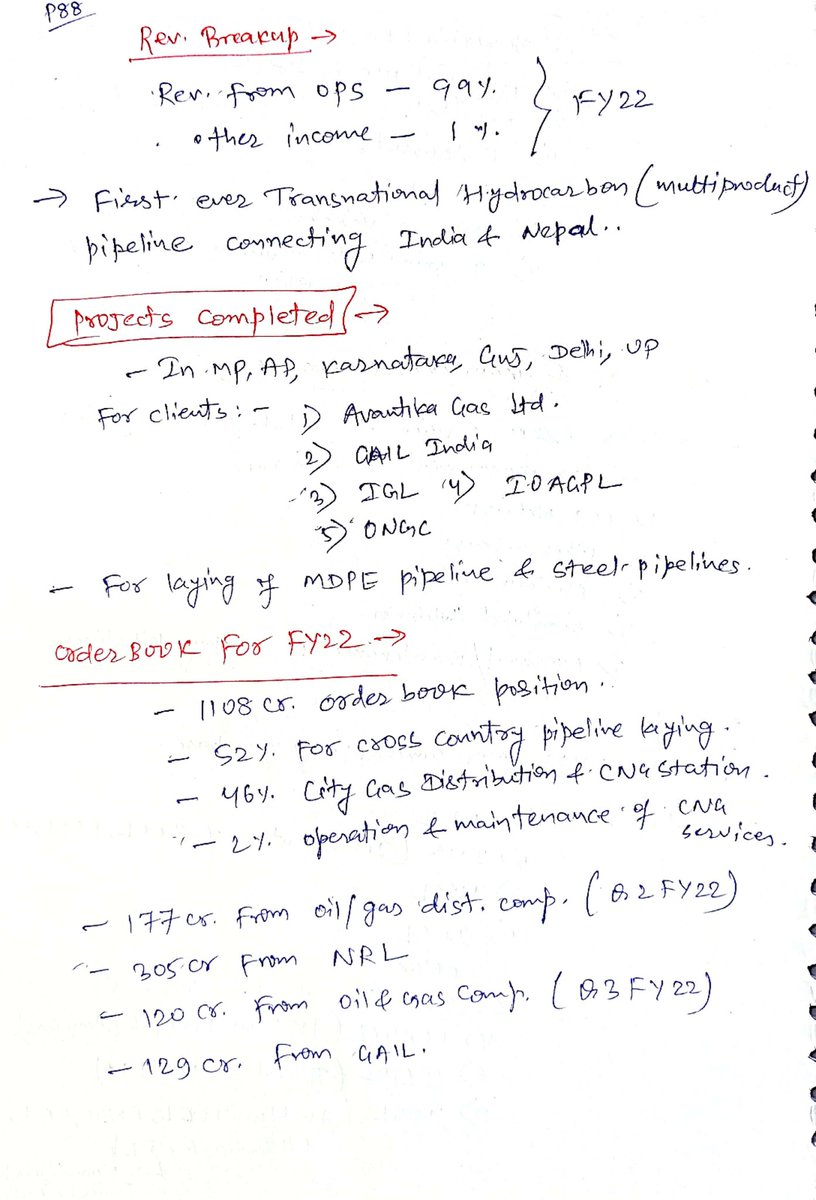 P88
Rev. Breakup →
Rev. from OPS – 99%.
. other income – 1%. } FY22
→ First ever Transnational Hydrocarbon (multiproduct)
pipeline connecting India & Nepal..
Projects Completed →
– In MP, AP, Karnataka, Guj, Delhi, UP
For clients: – 1) Avantika Gas Ltd.
2) GAIL India
3) IGL 4) IOAGPL
5) ONGC
– For laying of MDPE pipeline & steel pipelines.
Order BOOK For FY22 →
– 1108 cr. order book position.
– 52%. For cross country pipeline laying.
– 46%. City Gas Distribution & CNG Station.
– 2%. operation & maintenance of CNG
services.
– 177 cr. From oil/gas dist. comp. (Q2 FY22)
– 305 cr From NRL
– 120 cr. From Oil & Gas Comp. (Q3 FY22)
– 129 cr. From GAIL.